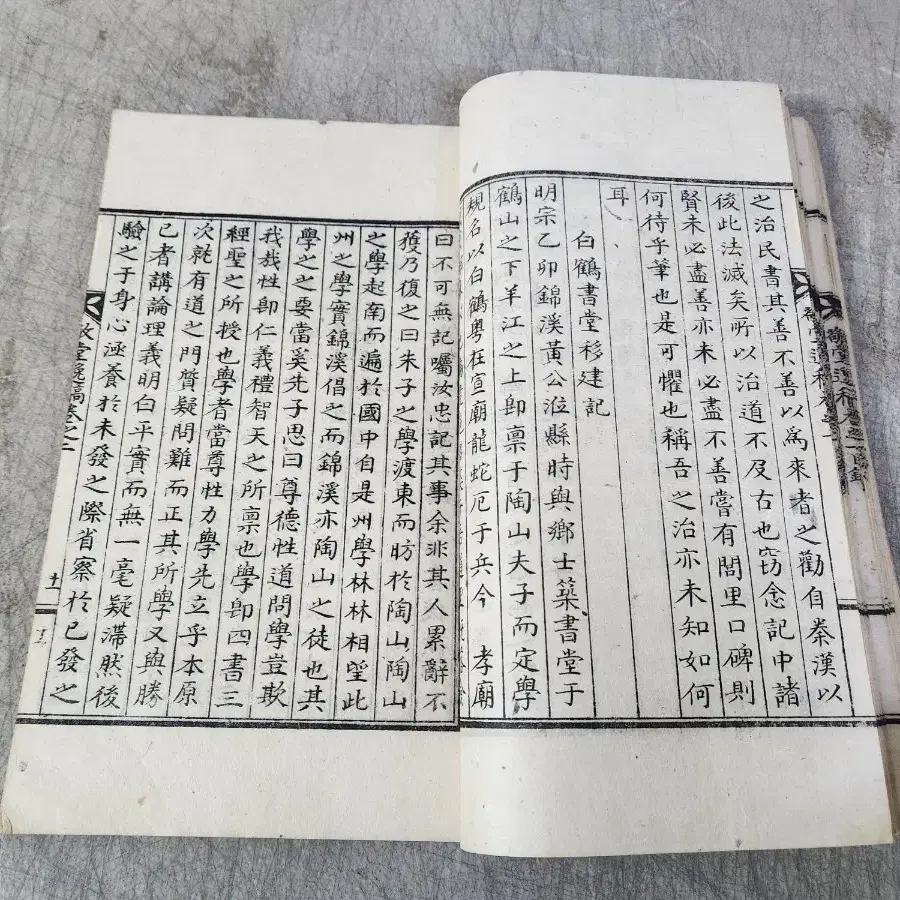 之治民書其善不善以爲來者之勸自秦漢以
後此法滅矣所以治道不及古也窃念記中諸
賢未必盡善亦未必盡不善嘗有閭里口碑則
何待乎筆也是可懼也稱吾之治亦未知如何
耳
白鶴書堂移建記
明宗乙卯錦溪黃公涖縣時與鄉士築書堂于
鶴山之下羊江之上卽禀于陶山夫子而定學
規名以白鶴粤在宣廟龍蛇厄于兵今 孝廟
曰不可無記囑汝忠記其事余非其人累辭不
獲乃復之曰朱子之學渡東而昉於陶山陶山
之學起南而遍於國中自是州學林林相望此
州之學實錦溪倡之而錦溪亦陶山之徒也其
學之之要當奚先子思曰尊德性道問學豈欺
我哉性卽仁義禮智天之所禀也學卽四書三
經聖之所授也學者當尊性力學先立乎本原
次就有道之門質疑問難而正其所學又與勝
己者講論理義明白平實而無一毫疑滯然後
驗之于身心涵養於未發之際省察於已發之
堂逸稿卷之二
十一